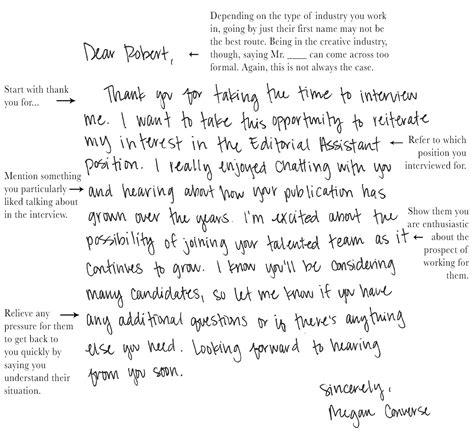 Depending on the type of industry you work
in, going by just their first name may not be
the best route. Being in the creative industry,
though, saying Mr. ____ can come across too
formal. Again, this is not always the case.
Dear Robert,
Start with thank
you for...
Thank you for taking the time to interview
me. I want to take this opportunity to reiterate
my interest in the Editorial Assistant
position. I really enjoyed chatting with you
and hearing about how your publication has
grown over the years. I'm excited about the
possibility of joining your talented team as it
continues to grow. I know you'll be considering
many candidates, so let me know if you have
any additional questions or if there's anything
else you need. Looking forward to hearing
from you soon.
Refer to which
position you
interviewed for.
Mention something
you particularly
liked talking about
in the interview.
Show them you
are enthusiastic
about the
prospect of
working for
them.
Relieve any
pressure for them
to get back to
you quickly by
saying you
understand their
situation.
Sincerely,
Megan Converse